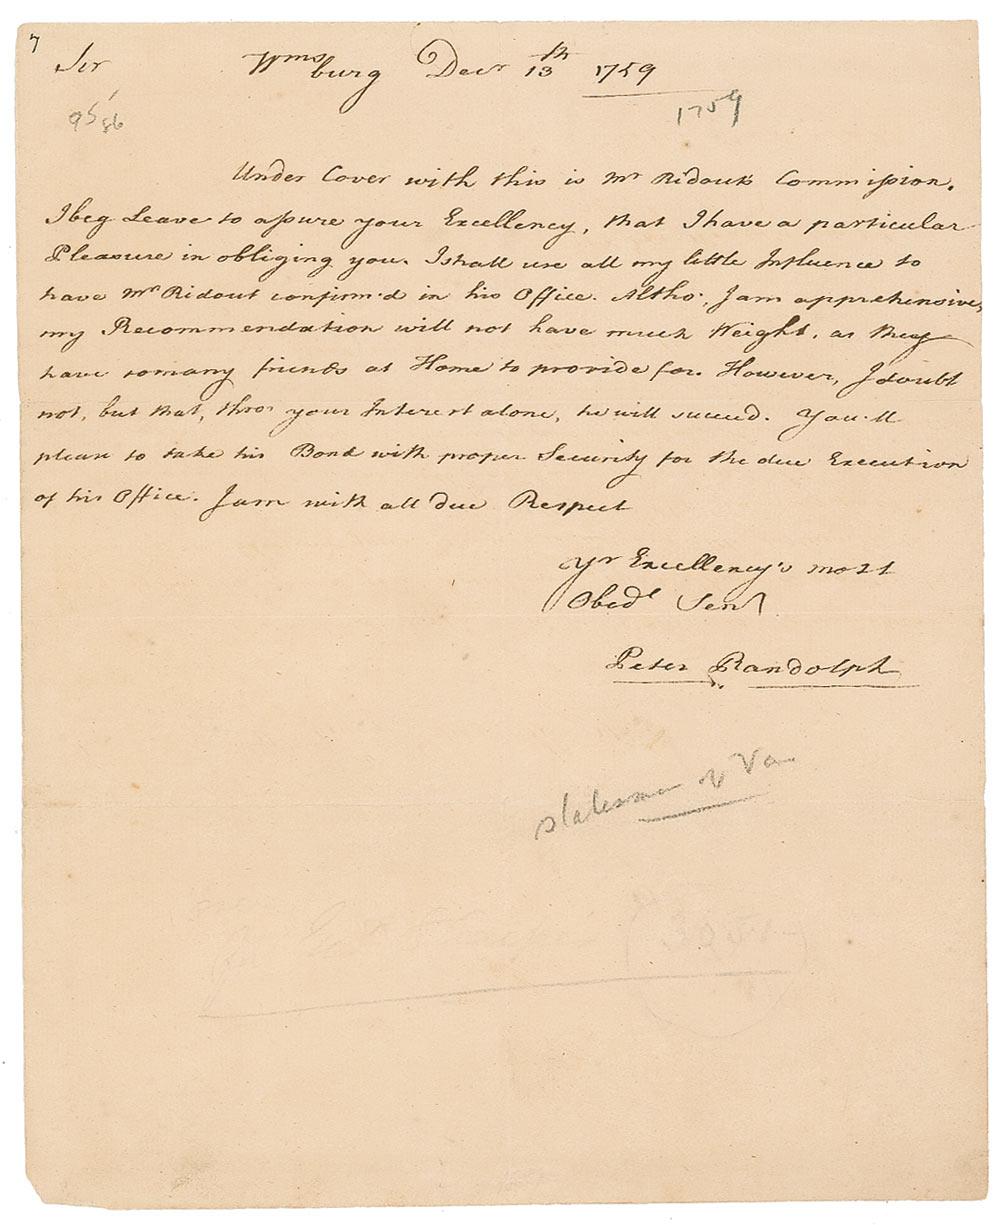 7
Sir Wmsburg Decr 13th 1759
1759
Under Cover with this is Mr Ridout's Commission.
I beg Leave to assure your Excellency, that I have a particular
Pleasure in obliging you. I shall use all my little Influence to
have Mr Ridout confirm'd in his Office. Altho', I am apprehensive,
my Recommendation will not have much Weight, as they
have so many friends at Home to provide for. However, I doubt
not, but that, thro' your Interest alone, he will succeed. You'll
please to take his Bond with proper Security for the due Execution
of his Office. I am with all due Respect
Yr Excellency's most
Obedt Servt
Peter Randolph
statesman of Va